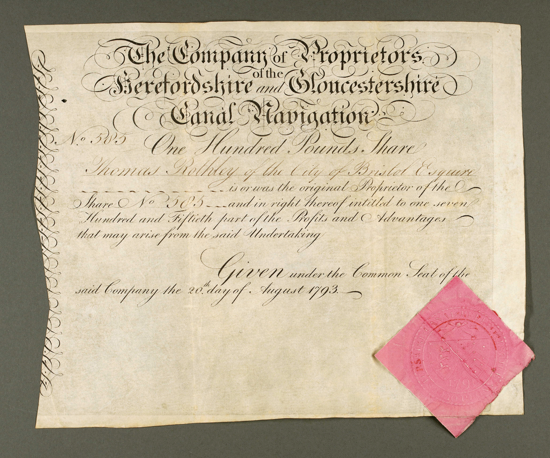 The Company of Proprietors
of the
Herefordshire and Gloucestershire
Canal Navigation
No. 505 One Hundred Pounds Share
Thomas Rothley of the City of Bristol Esquire
is or was the original Proprietor of the
Share No. 505 and in right thereof intitled to one seven
Hundred and Fiftieth part of the Profits and Advantages
that may arise from the said Undertaking
Given under the Common Seal of the
said Company the 20th day of August 1793